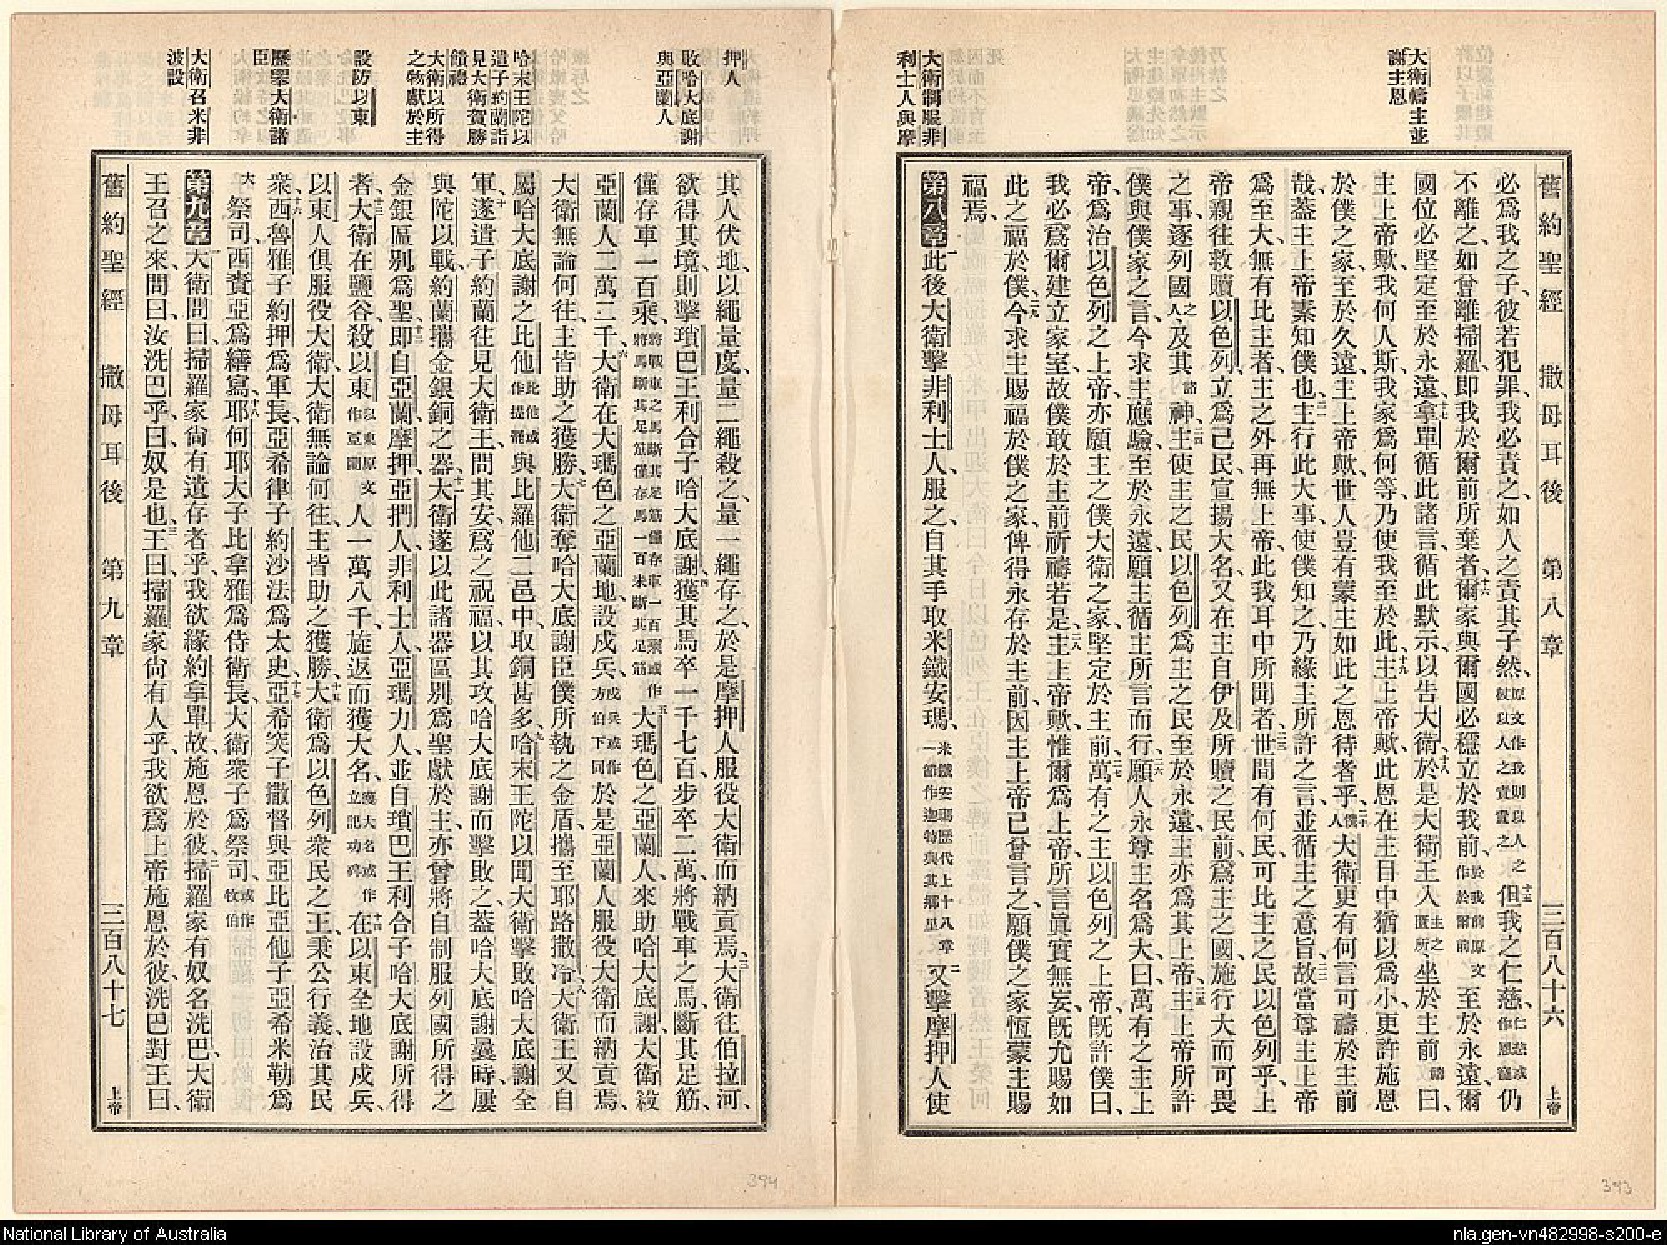 大衛禱主並
謝主恩
大衛制服非
利士人與摩
舊約聖經　撒母耳後　第八章　三百八十六　上帝
必為我之子、彼若犯罪、我必責之、如人之責其子然、原文作我則以人之杖以人之責責之十五但我之仁慈、仁慈或作恩寵仍
不離之、如曾離掃羅、即我於爾前所棄者、十六爾家與爾國必穩立於我前、於我前原文作於爾前至於永遠、爾
國位必堅定至於永遠、十七拿單循此諸言、循此默示、以告大衛、十八於是大衛王入主之匱所坐於主前、謂曰、
主上帝歟、我何人斯、我家為何等、乃使我至於此、十九主上帝歟、此恩在主目中猶以為小、更許施恩
於僕之家、至於久遠、主上帝歟、世人豈有蒙主如此之恩待者乎、二十大衛更有何言可禱於主前
哉、蓋主上帝素知僕也、二一主行此大事、使僕知之、乃緣主所許之言、並循主之意旨、二二故當尊主上帝
為至大、無有比主者、主之外再無上帝、此我耳中所聞者、二三世間有何民可比主之民以色列乎、上
帝親往救贖以色列、立為己民、宣揚大名、又在主自伊及所贖之民前、為主之國、施行大而可畏
之事、逐列國之人、及其諸神、二四主使主之民以色列為主之民、至於永遠、主亦為其上帝、二五主上帝所許
僕與僕家之言、今求主應驗、至於永遠、願主循主所言而行、二六願人永尊主名為大、曰、萬有之主上
帝、為治以色列之上帝、亦願主之僕大衛之家、堅定於主前、二七萬有之主、以色列之上帝、既許僕曰、
我必為爾建立家室、故僕敢於主前祈禱若是、二八主上帝歟、惟爾為上帝、所言真實無妄、既允賜如
此之福於僕、二九今求主賜福於僕之家、俾得永存於主前、因主上帝已曾言之、願僕之家恆蒙主賜
福焉、
第八章一此後大衛擊非利士人、服之、自其手取米鐵安瑪、米鐵安瑪歷代上十八章一節作迦特與其鄉里二又擊摩押人、使
押人
敗哈大底謝
與亞蘭人
哈末王陀以
遣子約蘭詣
見大衛賀勝
饋禮
大衛以所得
之物獻於主
設防以東
歷舉大衛諸
臣
大衛召米非
波設
其人伏地、以繩量度、量二繩殺之、量一繩存之、於是摩押人服役大衛而納貢焉、三大衛往伯拉河、
欲得其境、則擊瑣巴王利合子哈大底謝、四獲其馬卒一千七百、步卒二萬、將戰車之馬、斷其足筋、
僅存車一百乘、將戰車之馬斷其足筋僅存車一百乘或作將馬斷其足筋僅存馬一百未斷其足筋五大瑪色之亞蘭人、來助哈大底謝、大衛殺
亞蘭人二萬二千、六大衛在大瑪色之亞蘭地設戍兵、戍兵或作方伯下同於是亞蘭人服役大衛而納貢焉、
大衛無論何往、主皆助之獲勝、七大衛奪哈大底謝臣僕所執之金盾、攜至耶路撒冷、八大衛王又自
屬哈大底謝之比他、比他或作提巴與比羅他二邑中、取銅甚多、九哈末王陀以聞大衛擊敗哈大底謝全
軍、十遂遣子約蘭往見大衛王、問其安、為之祝福、以其攻哈大底謝而擊敗之、蓋哈大底謝曩時屢
與陀以戰、約蘭攜金銀銅之器、十一大衛遂以此諸器區別為聖、獻於主、亦曾將自制服列國所得之
金銀、區別為聖、十二即自亞蘭、摩押、亞捫人、非利士人、亞瑪力人、並自瑣巴王利合子哈大底謝所得
者、十三大衛在鹽谷、殺以東以東原文作亞蘭人一萬八千、旋返而獲大名、獲大名或作立記功碑十四在以東全地設戍兵、
以東人俱服役大衛、大衛無論何往、主皆助之獲勝、十五大衛為以色列眾民之王、秉公行義、治其民
眾、十六西魯雅子約押為軍長、亞希律子約沙法為太史、十七亞希突子撒督與亞比亞他子亞希米勒為
大祭司、西賚亞為繕寫、十八耶何耶大子比拿雅為侍衛長、大衛眾子為祭司、或作牧伯
第九章一大衛問曰、掃羅家尚有遺存者乎、我欲緣約拿單故、施恩於彼、二掃羅家有奴名洗巴、大衛
王召之來、問曰、汝洗巴乎、曰、奴是也、三王曰、掃羅家尚有人乎、我欲為上帝施恩於彼、洗巴對王曰、
舊約聖經　撒母耳後　第九章　三百八十七　上帝
394
393
National Library of Australia
nla.gen-vn482998-s200-e